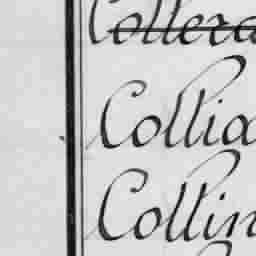 Collera
Collia
Collin